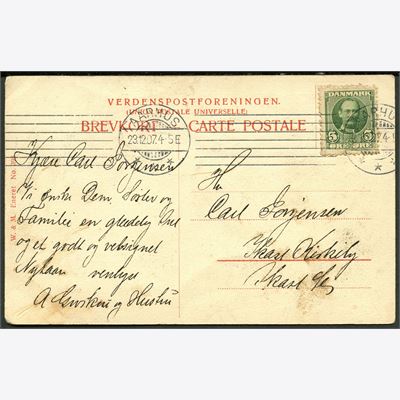 VERDENSPOSTFORENINGEN.
(UNION POSTALE UNIVERSELLE)
BREVKORT CARTE POSTALE
AARHUS
23.12.07. 4-5 E
DANMARK
5 5
ØRE ØRE
W. & M. Eneret No.
Kjære Carl Sørgensen
Vi ønske Dem, Søster og
Familie en glædelig Jul
og et godt og velsignet
Nytaar venligst
A og Hustru
Hr.
Carl Sørgensen
Skast Kirkeby
Skast